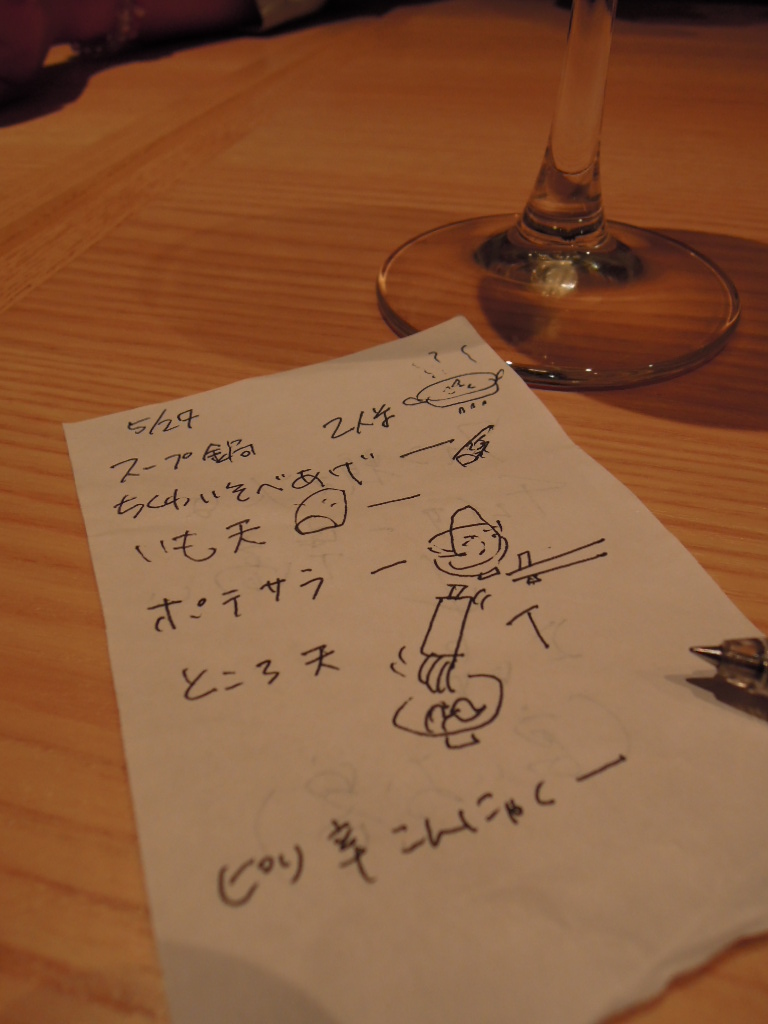 5/24
スープ鍋 2人分
ちくわいそべあげ 一
いも天 一
ポテサラ 一
ところ天 T
ピリ辛こんにゃく 一